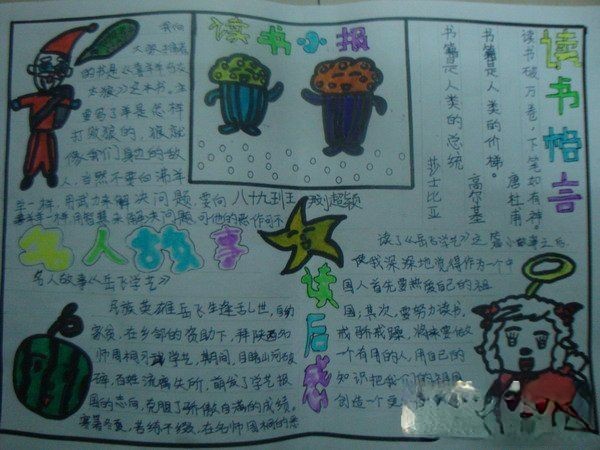 我向
大家推荐
的书是《喜羊羊与灰
太狼》这本书,主
要写了羊是怎样
打败狼的,狼就
像我们身边的敌
人,当然不要向沸羊
羊一样,用武力来解决问题,要向
喜羊羊一样用智慧来解决问题
读书小报
八十九班
刘超颖
书籍是人类的总统
莎士比亚
书籍是人类的价梯。
高尔基
读书破万卷,下笔如有神。
唐杜甫
读书格言
名人故事
名人故事《岳飞学艺》
民族英雄岳飞生逢乱世,自幼
家贫,在乡邻的资助下,拜陕西名
师周桐习武学艺,期间,目睹山河破
碎,百姓流离失所,萌发了学艺报
国的志向,克服了骄傲自满的成绩。
寒暑冬夏,苦练不缀,在名师周桐的
读后感
读了《岳飞学艺》这篇小故事之后,
使我深深地觉得作为一个中
国人首先要热爱自己的祖
国;其次,要努力读书,
戒骄戒躁,将来要做
一个有用的人,用自己的
知识把我们的祖国
创造个更